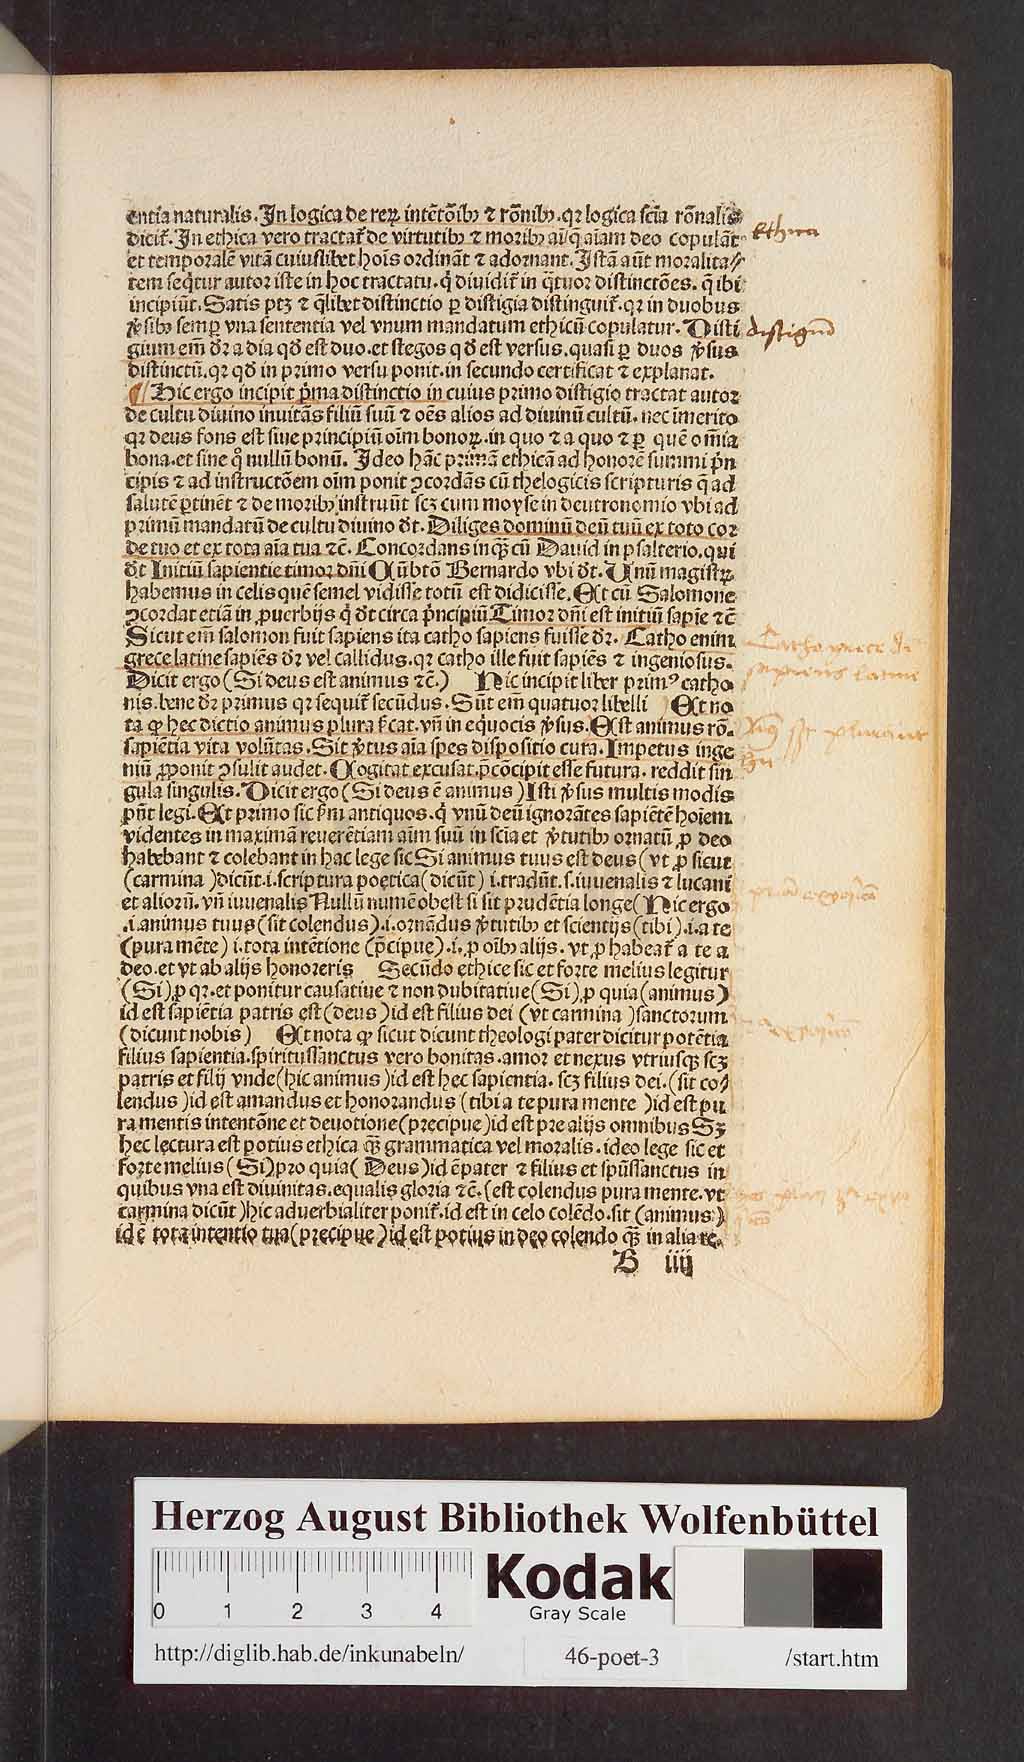 entia naturalis. In logica de reꝝ intẽtõibꝯ ⁊ rõnibꝯ. qꝛ logica scĩa rõnalis
dicit᷑. In ethica vero tractat᷑ de virtutibꝯ ⁊ moribꝯ aĩ q̃ aĩam deo copulãt
Ethica
et temporalẽ vitã cuiuslibet hoĩs ordinãt ⁊ adornant. Istã aũt moralita⸗
tem seq̃tur autor iste in hoc tractatu. q̇ diuidit᷑ in q̃tuor distinctões. q̃ ibi
incipiũt. Satis ptꝫ ꝙ q̃libet distinctio ꝑ distigia distinguit᷑. qꝛ in duobus
ꝟsibꝯ semꝑ vna sententia vel vnum mandatum ethicũ copulatur. Disti
gium em̃ dꝛ a dia qð est duo. et stegos qð est versus. quasi ꝑ duos ꝟsus
distinctũ. qꝛ qð in primo versu ponit. in secundo certificat ⁊ explanat.
¶ Hic ergo incipit pͥma distinctio in cuius primo distigio tractat autor
de cultu diuino inuitãs filiũ suũ ⁊ oẽs alios ad diuinũ cultũ. nec ĩmerito
qꝛ deus fons est siue principiũ oĩm bonoꝝ. in quo ⁊ a quo ⁊ ꝑ quẽ om̃ia
bona. et sine qͦ nullũ bonũ. Ideo hãc primã ethicã ad honorẽ summi pͥn
cipis ⁊ ad instructõem oĩm ponit ↄcordãs cũ thelogicis scripturis q̃ ad
salutẽ ꝑtinẽt ⁊ de moribꝯ instruũt scꝫ cum moyse in deutronomio vbi ad
primũ mandatũ de cultu diuino dt̃. Diliges dominũ deũ tuũ ex toto cor
de tuo et ex tota aĩa tua ⁊c̃. Concordans inqꝫ cũ Dauid in psalterio. qui
dt̃ Initiũ sapientie timor dñi Cũ btõ Bernardo vbi dt̃. Unũ magistꝝ
habemus in celis quẽ semel vidisse totũ est didicisse. Et cũ Salomone
ↄcordat etiã in ꝓuerbijs q̇ dt̃ circa pͥncipiũ Timor dñi est initiũ sapie ⁊c̃
Sicut em̃ salomon fuit sapiens ita catho sapiens fuisse dꝛ. Catho enim
grece latine sapiẽs dꝛ vel callidus. qꝛ catho ille fuit sapiẽs ⁊ ingeniosus.
sapiens latine
Dicit ergo (Si deus est animus ⁊c̃.) Hic incipit liber primꝰ catho
nis. bene dꝛ primus qꝛ sequit᷑ secũdus. Sũt em̃ quatuor libelli Et no
ta ꝙ hec dictio animus plura sͥcat. vñ in equocis ꝟsus. Est animus rõ.
sapiẽtia vita volũtas. Sit ꝟtus aĩa spes dispositio cura. Impetus inge
niũ ꝓponit ↄsulit audet. Cogitat excusat. p̃cõcipit esse futura. reddit sin
gula singulis. Dicit ergo (Si deus ẽ animus) Isti ꝟsus multis modis
pñt legi. Et primo sic sͫm antiquos. q̇ vnũ deũ ignorãtes sapiẽtẽ hoĩem
videntes in maximã reuerẽtiam aĩm suũ in scĩa et ꝟtutibꝯ ornatũ ꝓ deo
habebant ⁊ colebant in hac lege sic Si animus tuus est deus (vt ꝓ sicut
(carmina) dicũt. i. scriptura poetica (dicũt) i. tradũt. s. iuuenalis ⁊ lucani
et aliorũ. vñ iuuenalis Nullũ numẽ obest si sit prudẽtia longe (Hic ergo
.i. animus tuus (sit colendus). i. ornãdus ꝟtutibꝯ et scientijs (tibi). i. a te
(pura mẽte) i. tota intẽtione (p̃cipue). i. ꝓ oĩbꝯ alijs. vt ꝓ habeat᷑ a te a
deo. et vt ab alijs honoreris Secũdo ethice sic et forte melius legitur
(Si) ꝓ qꝛ. et ponitur causatiue ⁊ non dubitatiue (Si) ꝓ quia (animus)
id est sapiẽtia patris est (deus) id est filius dei (vt carmina) sanctorum
(dicunt nobis) Et nota ꝙ sicut dicunt theologi pater dicitur potẽtia
filius sapientia. spiritussanctus vero bonitas. amor et nexus vtriusqꝫ scꝫ
patris et filij vnde (hic animus) id est hec sapientia. scꝫ filius dei. (sit co⸗
lendus) id est amandus et honorandus (tibi a te pura mente) id est pu
ra mentis intentõne et deuotione (precipue) id est pre alijs omnibus Sꝫ
hec lectura est potius ethica qꝫ̃ grammatica vel moralis. ideo lege sic et
forte melius (Si) pro quia (Deus) id ẽ pater ⁊ filius et spũssanctus in
quibus vna est diuinitas. equalis gloria ⁊c̃. (est colendus pura mente. vt
carmina dicũt) hic aduerbialiter ponit᷑. id est in celo colẽdo. sit (animus)
id ẽ tota intentio tua (precipue) id est potius in deo colendo qꝫ̃ in alia re.
B iiij
Herzog August Bibliothek Wolfenbüttel
0 1 2 3 4
Kodak
Gray Scale
http://diglib.hab.de/inkunabeln/ 46-poet-3 /start.htm